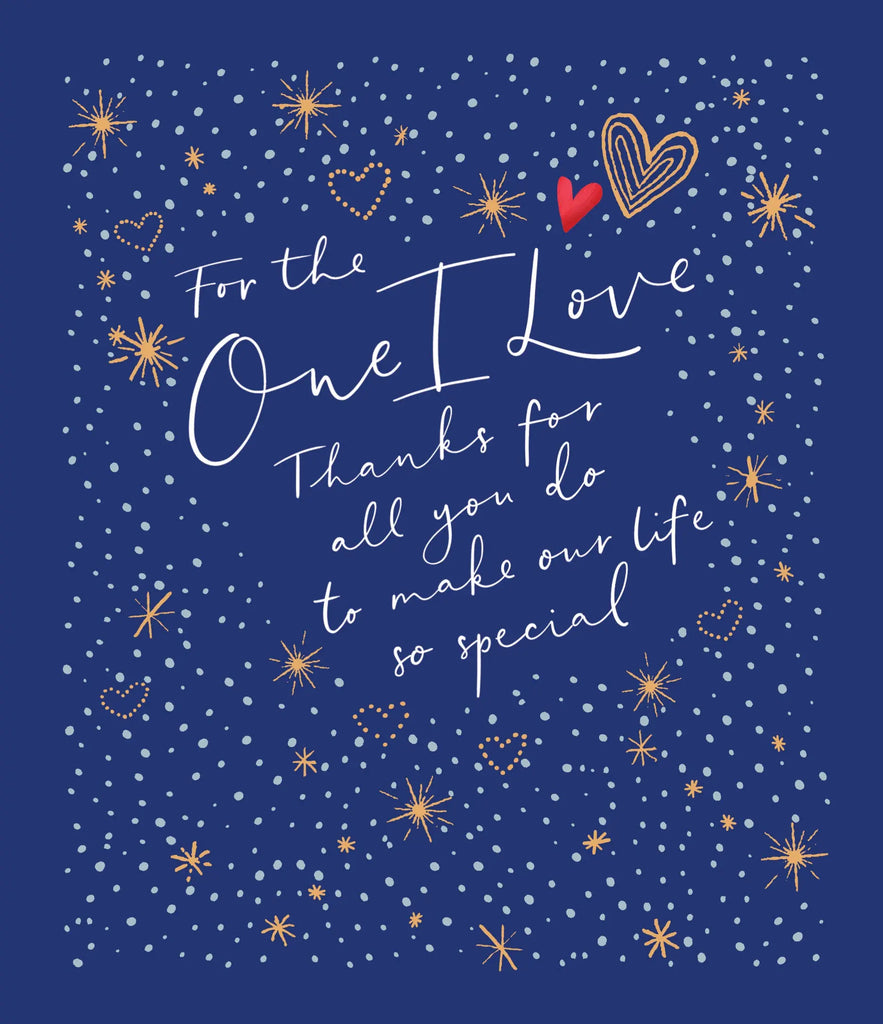 For the
One I Love
Thanks for
all you do
to make our life
so special